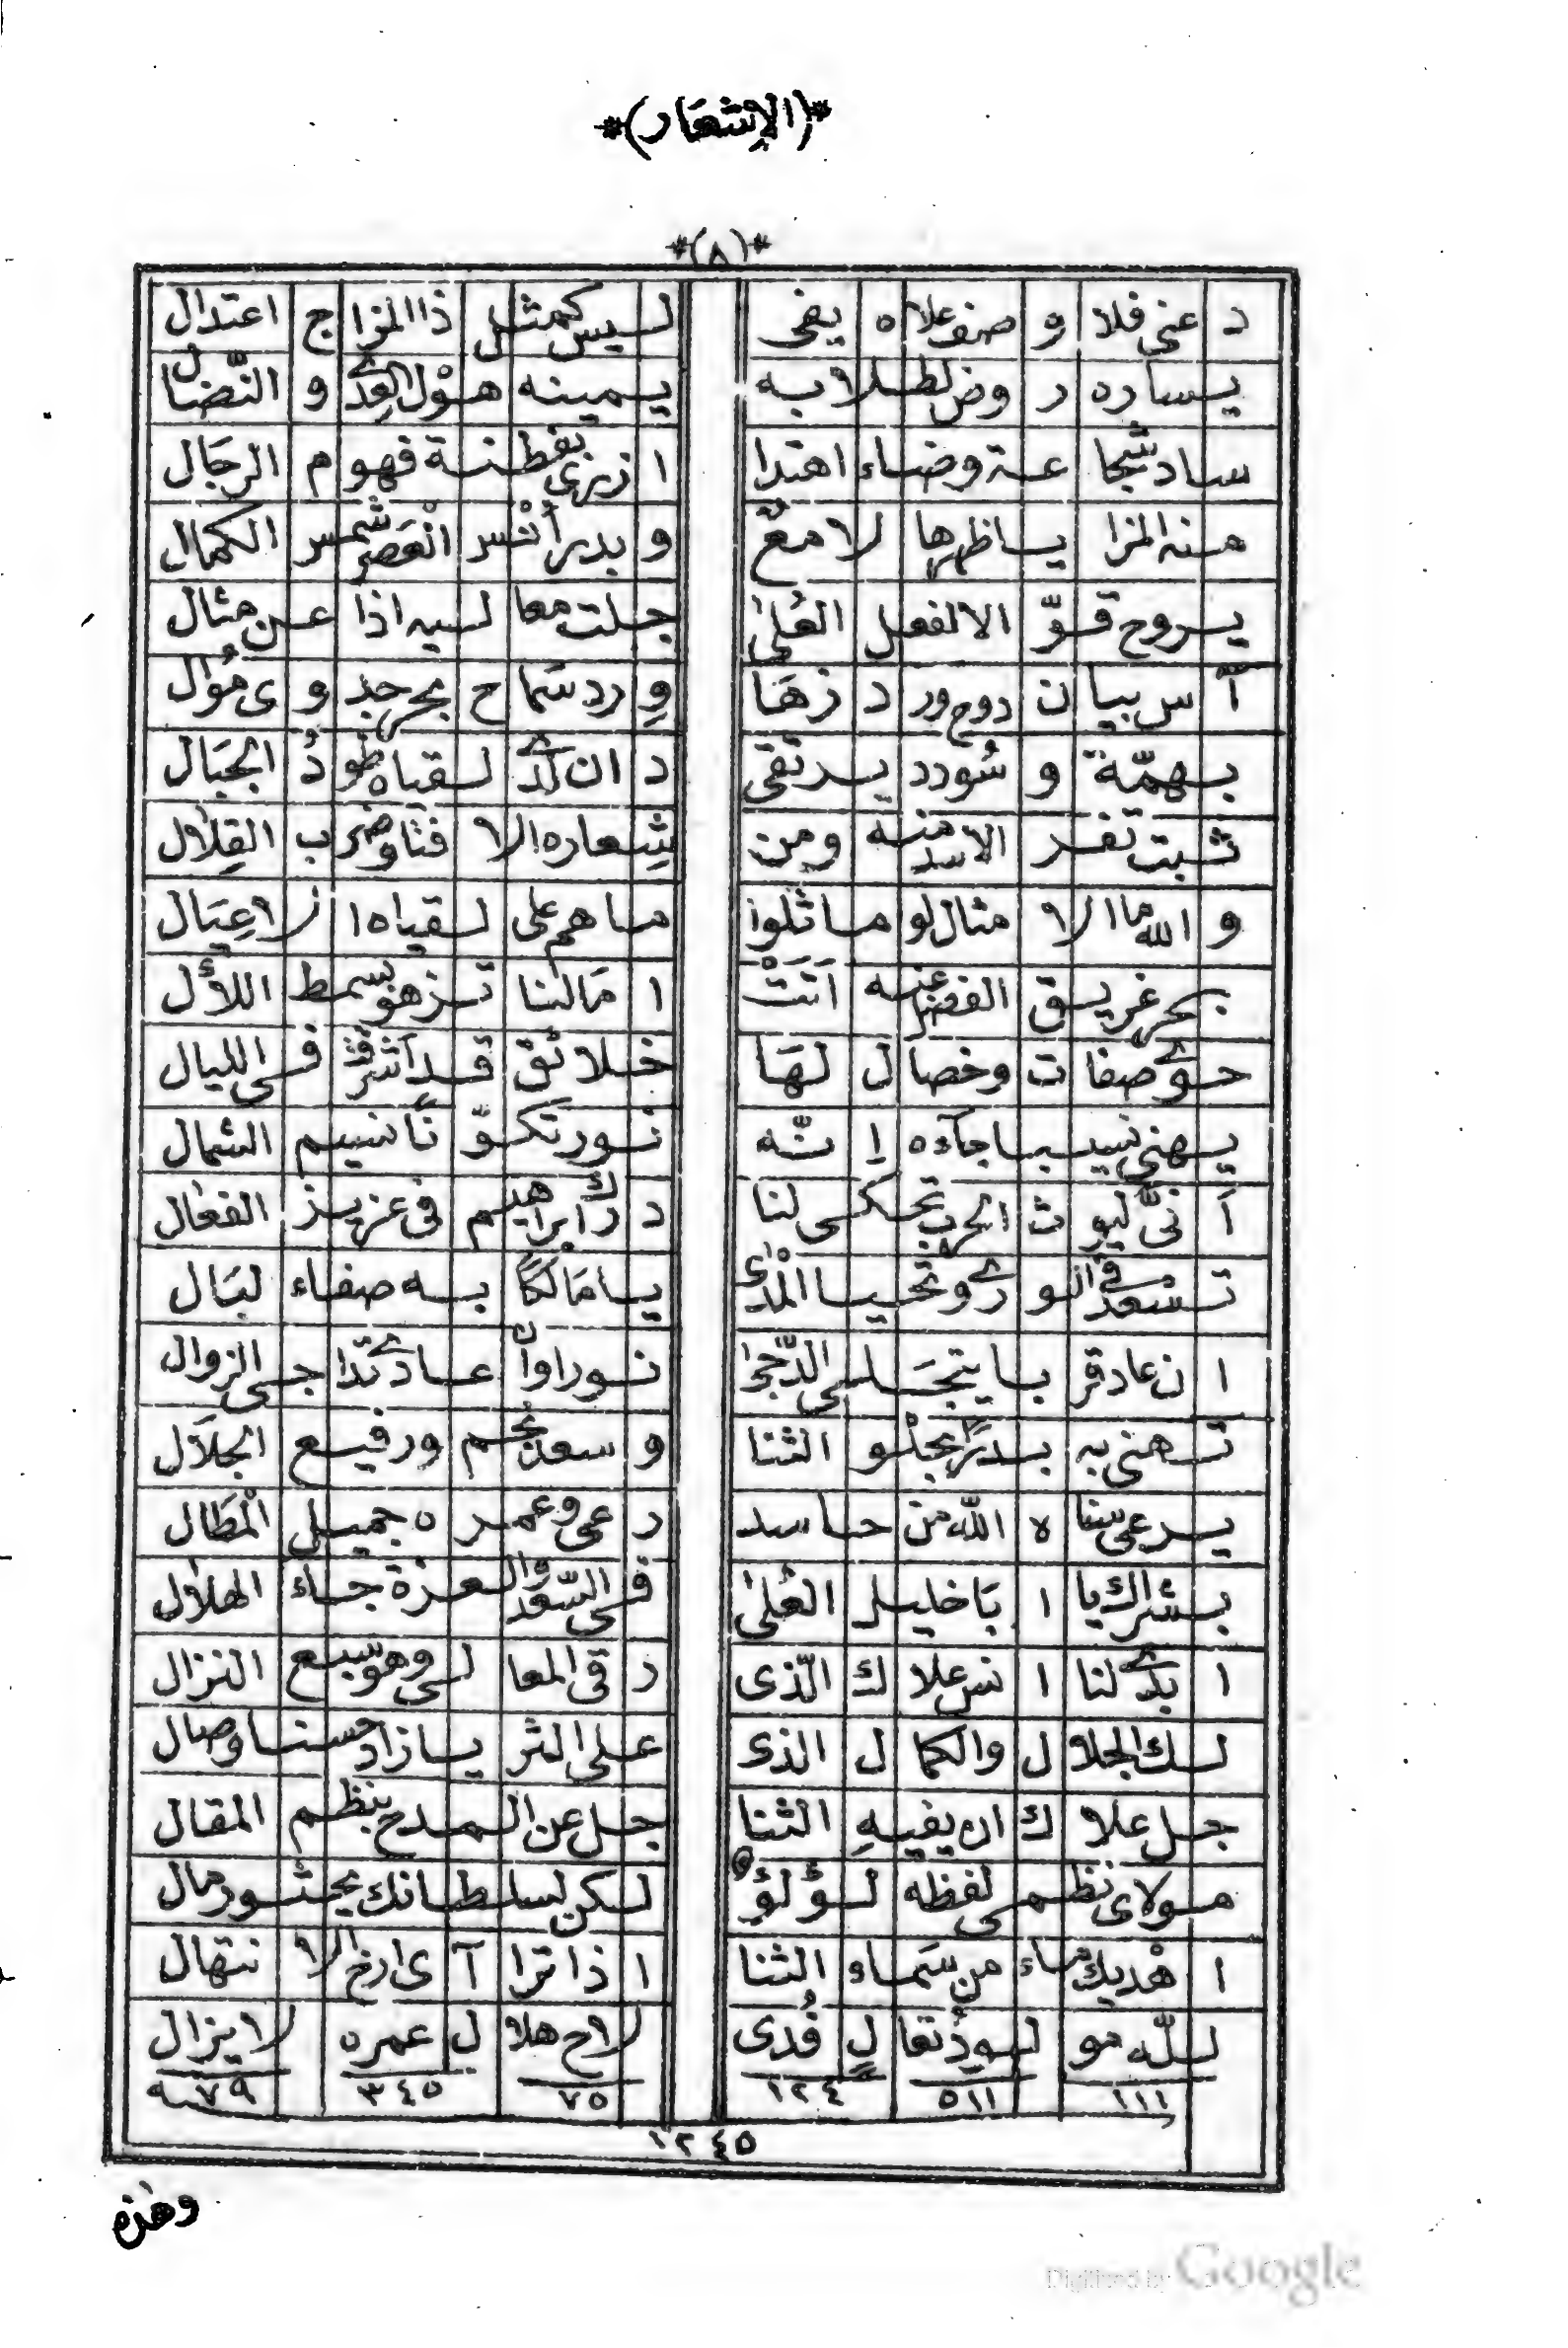 *(الإشعار)*
*(٨)*
د عني فلا و صف علاه يفى ليس كمثل ذا المزاج اعتدال
يساره روض لطلابه يمينه هول العدى و النضال
ساد شجاعة وضاء اهتدا ازرى بفطنة فهوم الرجال
منه المزايا ظهرها لامع و بدر أنس العصر شمس الكمال
يروح قوّالا لفعل العُلى جلت معاليه اذا عن مثال
آس بيان دوح ورد زها ورد سماح بحر جدوى مُوال
بهمّة و سُودد يرتقى دان لدى لقياه طودُ الجبال
ثبت تفر الاسد منه ومن شعاره الا فتا وضرب القلال
و الله ما الا مثال لو ماثلوا ما هم على لقياه الا عيال
بحر غريق الفضل عنه أتَتْ امالنا تزهو بسمط اللأل
حوى صفات وخصال لها خلائق قد أشرقت فى الليال
يهنى نسيبا جآءه إنّه نور تكوّنا نسيم الشمال
أنىّ ليوث الحرب تحكى لنا دراك ابراهيم فى عزيز الفعال
تسعد فى الورى وتحيا المدى يا مالكا به صفاء لبال
ان عاد قربا يتجلى الدّجى نورا وأعادى بدا جى الزوال
تهنى به بدر يجلو الثنا و سعد نجم ورفيع الجلال
يرعى سناه الله من حاسد رعى وعمره جميل المطال
بشراك يا ابا خليل العُلى فى السّعد والعزة جاء الهلال
ابدى لنا انس علاك الّذى رقى المعالى وهو سبع النزال
لك الجلال والكمال الذى على الثريا زاد حسنا وصال
جل علاك ان يفيهِ الثنا جل عن المدح بنظم المقال
مولاى نظمى لفظه لؤلؤ لكن لسلطانك يحثو رمال
اهديك ماء من سماء الثنا اذا ترا آى ارخ الا نتهال
لله مولود تعالٍ فُدى لاح هلال عمره لا يزال
١١١ ٥١١ ١٢٤ ٧٥ ٣٤٥ ٧٩
١٢٤٥
وهذه
Digitized by Google